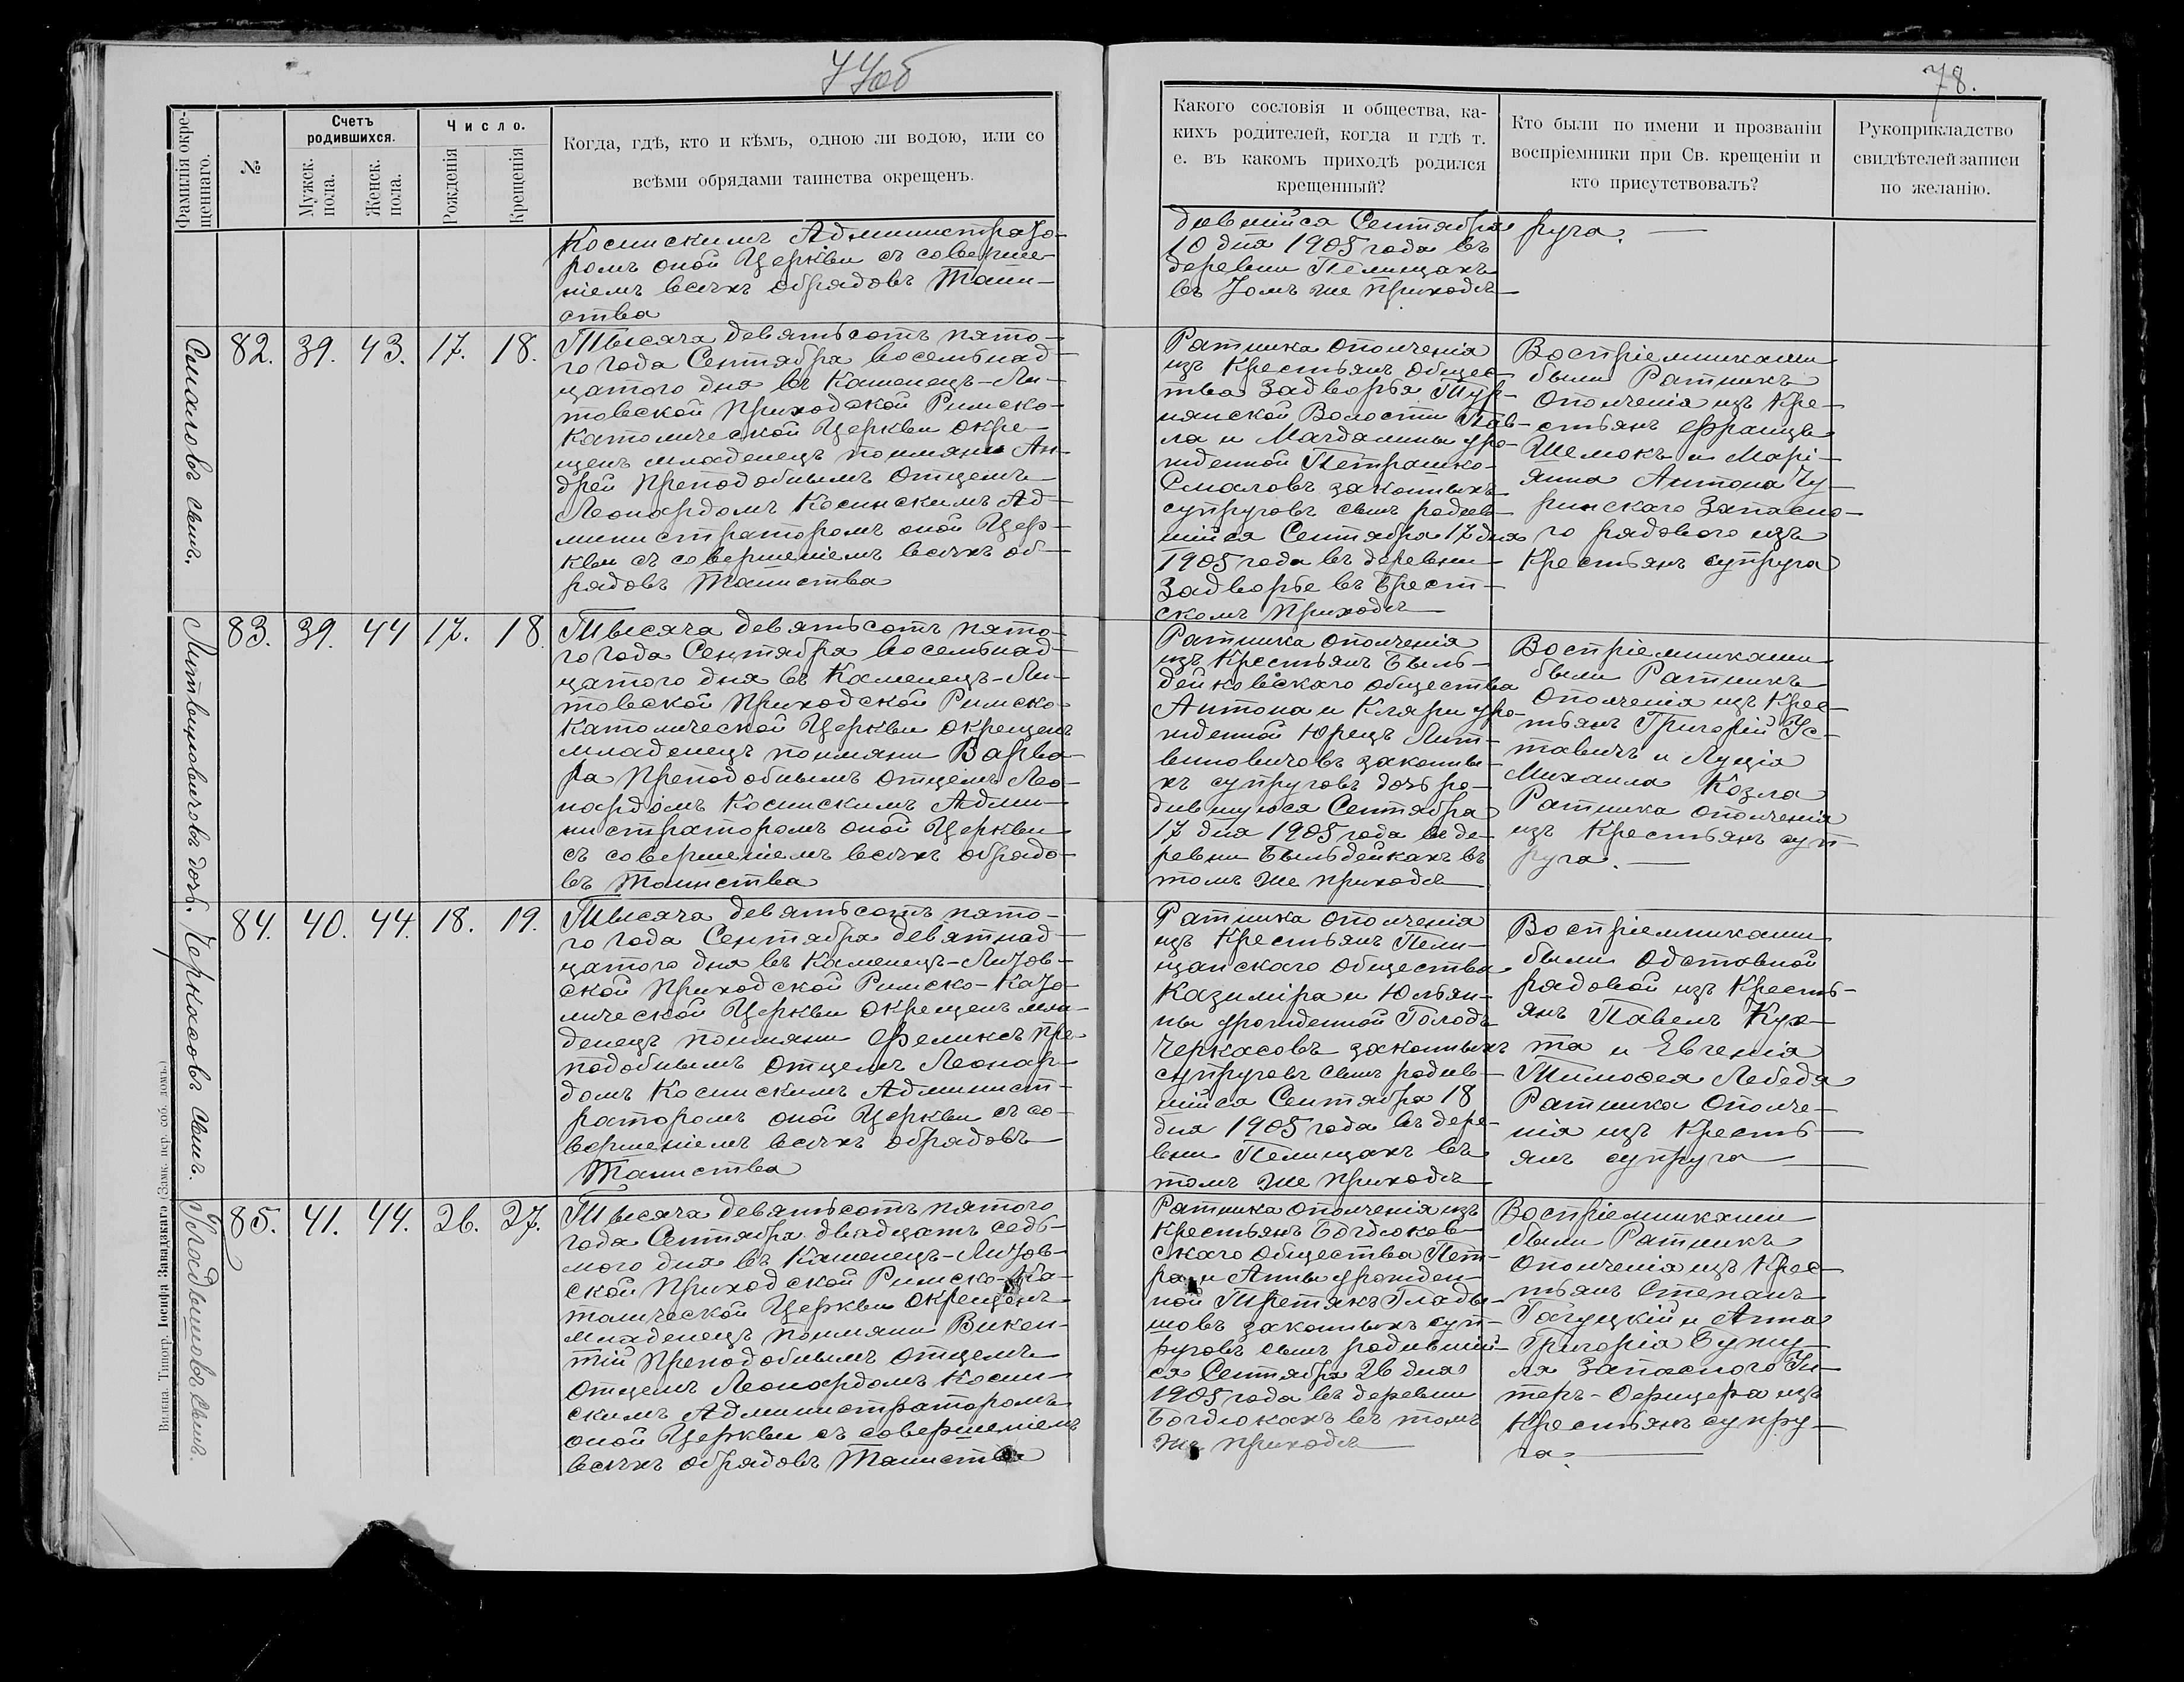 77об
78.
Фамилія окре-
щеннаго.
№
Счетъ
родившихся.
Мужск.
пола.
Женск.
пола.
Число.
Рожденія
Крещенія
Когда, гдѣ, кто и кѣмъ, одною ли водою, или со
всѣми обрядами таинства окрещенъ.
Какого сословія и общества, ка-
кихъ родителей, когда и гдѣ т.
е. въ какомъ приходѣ родился
крещенный?
Кто были по имени и прозваніи
воспріемники при Св. крещеніи и
кто присутствовалъ?
Рукоприкладство
свидѣтелей записи
по желанію.
Косинскимъ Администрато-
ромъ оной Церкви съ соверше-
ніемъ всѣхъ обрядовъ Таин-
ства
дившійся Сентября
10 дня 1905 года въ
деревни Пелищахъ
въ томъ же приходѣ
руга.
Смаловъ сынъ.
82. 39. 43. 17. 18.
Тысяча девятьсотъ пято-
го года Сентября восемьнад-
цатого дня въ Каменецъ-Ли-
товской Приходской Римско-
Католической Церкви окре-
щенъ младенецъ поимяни Ан-
дрей Преподобнымъ Отцемъ
Леонардомъ Косинскимъ Ад-
министраторомъ оной Цер-
кви съ совершеніемъ всѣхъ об-
рядовъ Таинства
Ратника ополченія
изъ Крестьянъ общес-
тва Задворья Тур-
нянской Волости Пав-
ла и Магдалины уро-
жденной Петрашко-
Смаловъ законныхъ
супруговъ сынъ родив-
шійся Сентября 17 дня
1905 года въ деревни
Задворье въ Брест-
скомъ Приходѣ
Воспріемниками
были Ратникъ
Ополченія изъ Кре-
стьянъ Францъ
Шелюкъ и Марі-
янна Антона Чу-
ринскаго Запасно-
го рядового изъ
Крестьянъ супруга
Литвиновичовъ дочь.
83. 39. 44 17. 18
Тысяча девятьсотъ пято-
го года Сентября восемьнад-
цатого дня въ Каменецъ-Ли-
товской Приходской Римско-
Католической Церкви окрещенъ
младенецъ поимяни Варва-
ра Преподобнымъ Отцемъ Лео-
нардомъ Косинскимъ Адми-
нистраторомъ оной Церкви
съ совершеніемъ всѣхъ обрядо-
въ Таинства
Ратника ополченія
изъ Крестьянъ Быль-
дейковскаго общества
Антона и Кляри уро-
жденной Юрецъ Лит-
виновичовъ законны-
хъ супруговъ дочь ро-
дившуюся Сентября
17 дня 1905 года въ де-
ревни Быльдейкахъ въ
томъ же приходѣ
Воспріемниками
были Ратникъ
Ополченія изъ Крес-
тьянъ Григорій Ус-
тавичъ и Луція
Михаила Козла
Ратника ополченія
изъ Крестьянъ суп-
руга.
Черкасовъ сынъ.
84. 40. 44. 18. 19.
Тысяча девятьсотъ пято-
го года Сентября девятнад-
цатого дня въ Каменецъ-Литов-
ской Приходской Римско-Като-
лической Церкви окрещенъ мла-
денецъ поимяни Феликсъ Пре-
подобнымъ Отцемъ Леонар-
домъ Косинскимъ Админист-
раторомъ оной Церкви съ со-
вершеніемъ всѣхъ обрядовъ
Таинства
Ратника ополченія
изъ Крестьянъ Пели-
щанскаго общества
Казиміра и Юльян-
ны урожденной Голодъ
Черкасовъ законныхъ
супруговъ сынъ родив-
шійся Сентября 18
дня 1905 года въ дере-
вни Пелищахъ въ
томъ же приходѣ
Воспріемниками
были Одставной
рядовой изъ Кресть-
янъ Павелъ Кух-
та и Евгенія
Тимофея Лебедя
Ратника Ополче-
нія изъ Кресть-
янъ супруга
Гладышовъ сынъ.
85. 41. 44. 26. 27.
Тысяча девятьсотъ пятого
года Сентября двадцать седь-
мого дня въ Каменецъ-Литов-
ской Приходской Римско-Ка-
толической Церкви Окрещенъ
младенецъ поимяни Викен-
тій Преподобнымъ Отцемъ
Отцемъ Леонардомъ Косин-
скимъ Администраторомъ
оной Церкви съ совершеніемъ
всѣхъ обрядовъ Таинства
Ратника ополченія изъ
Крестьянъ Богдюков-
скаго общества Пет-
ра и Анны урожден-
ной Третякъ Глады-
шовъ законныхъ суп-
руговъ сынъ родившій-
ся Сентября 26 дня
1905 года въ деревни
Богдюкахъ въ томъ
же приходѣ
Воспріемниками
были Ратникъ
Ополченія изъ Крес-
тьянъ Степанъ
Гагуцкій и Анна
Григорія
Запасного Ун-
теръ-Офицера изъ
Крестьянъ супру-
га.
Вильна. Типогр. Іосифа Завадзкаго (Замк. пер. соб. домъ.)